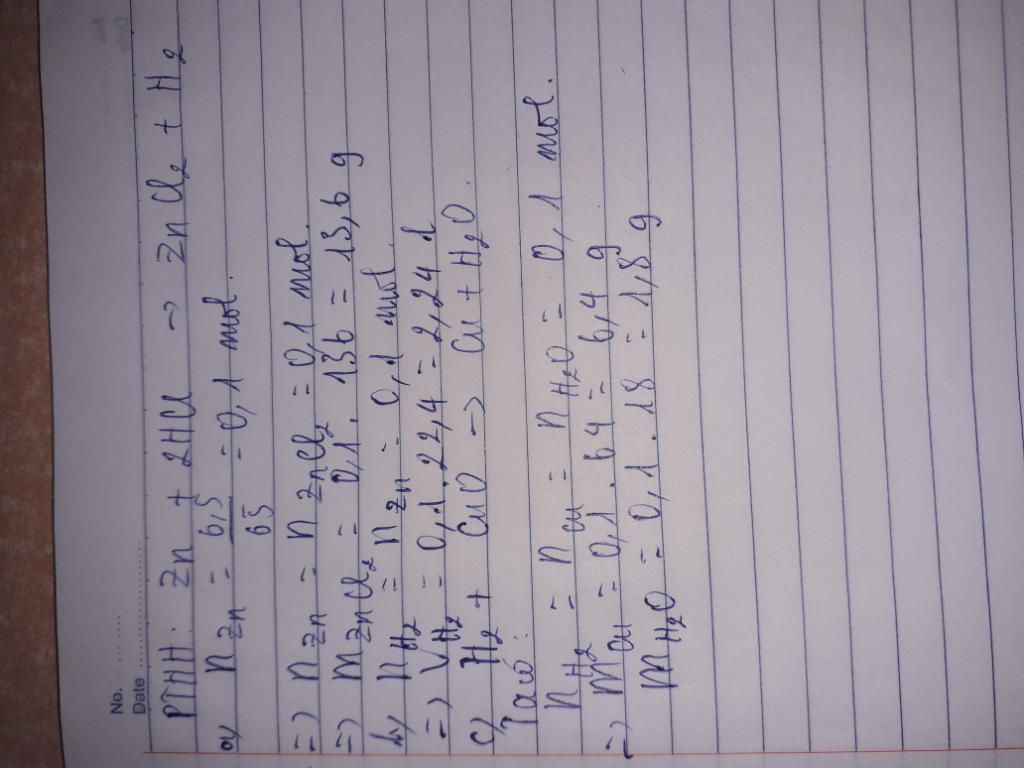 No. ...........
Date ...................
PTHH: Zn + 2HCl -> ZnCl2 + H2
a/ nZn = 6,5/65 = 0,1 mol.
=) nZn = nZnCl2 = 0,1 mol.
=) mZnCl2 = 0,1 . 136 = 13,6 g
b/ nH2 = nZn = 0,1 mol.
=) VH2 = 0,1. 22,4 = 2,24 l
c/ H2 + CuO -> Cu + H2O.
Ta có:
nH2 = nCu = nH2O = 0,1 mol.
=) mCu = 0,1 . 64 = 6,4 g
mH2O = 0,1 . 18 = 1,8 g